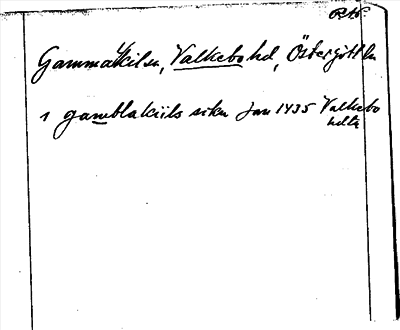 RAP.
Gammalkil sn, Valkebo hd, Östergötl ln
i gamblakiils sokn Jan 1435 Valkebo
hdtr